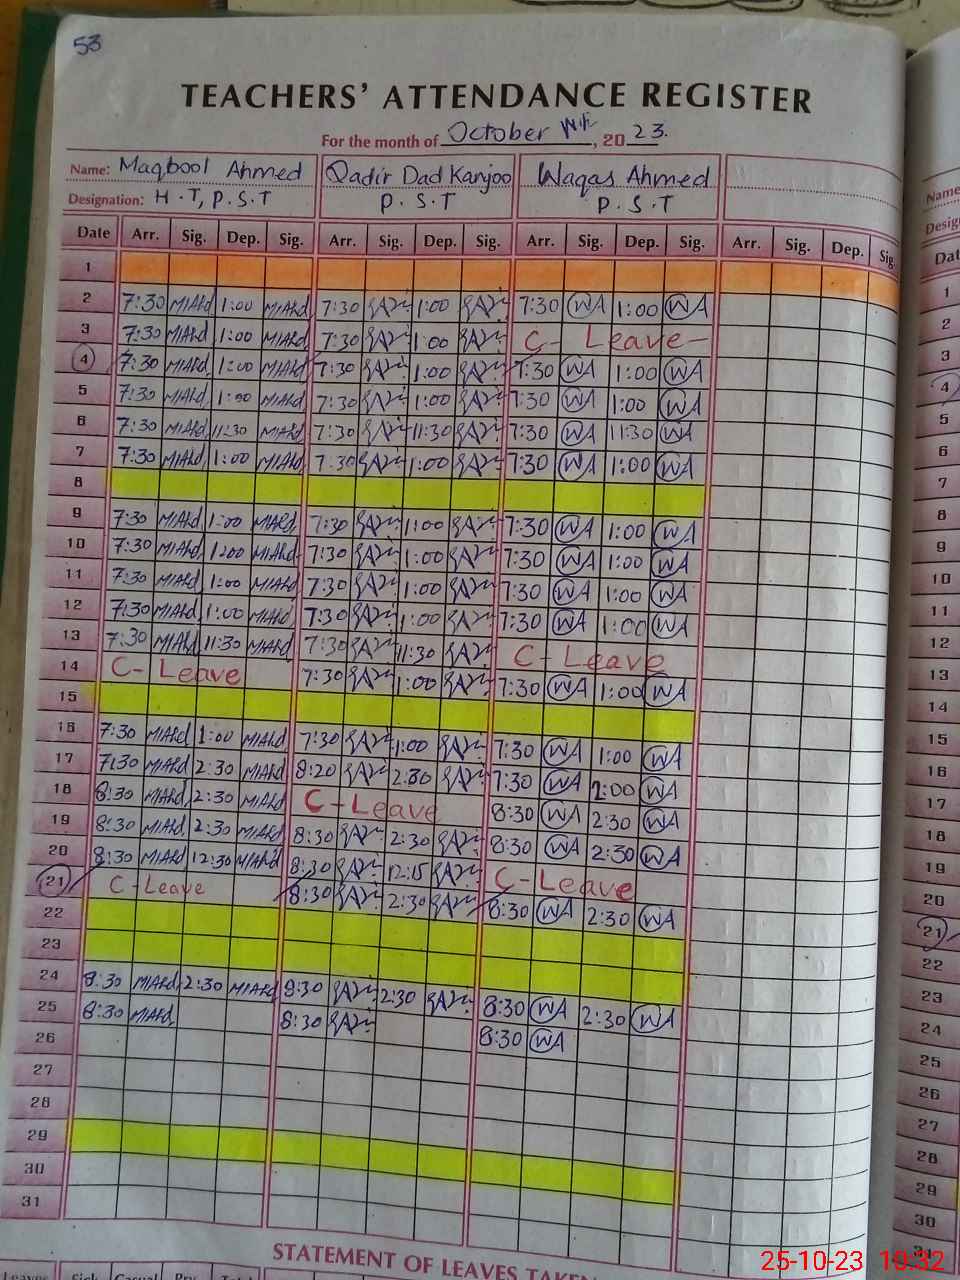 53
TEACHERS' ATTENDANCE REGISTER
For the month of October, 2023.
Name: Maqbool Ahmed Qadir Dad Kanjoo Waqas Ahmed
Designation: H.T, P.S.T P.S.T P.S.T
Date Arr. Sig. Dep. Sig. Arr. Sig. Dep. Sig. Arr. Sig. Dep. Sig. Arr. Sig. Dep. Sig.
1
2 7:30 1:00 7:30 1:00 7:30 WA 1:00 WA
3 7:30 1:00 7:30 1:00 C- Leave-
4 7:30 1:00 7:30 1:00 7:30 WA 1:00 WA
5 7:30 1:00 7:30 1:00 7:30 WA 1:00 WA
6 7:30 11:30 7:30 11:30 7:30 WA 11:30 WA
7 7:30 1:00 7:30 1:00 7:30 WA 1:00 WA
8
9 7:30 1:00 7:30 1:00 7:30 WA 1:00 WA
10 7:30 1:00 7:30 1:00 7:30 WA 1:00 WA
11 7:30 1:00 7:30 1:00 7:30 WA 1:00 WA
12 7:30 1:00 7:30 1:00 7:30 WA 1:00 WA
13 7:30 11:30 7:30 11:30 C- Leave
14 C- Leave 7:30 1:00 7:30 WA 1:00 WA
15
16 7:30 1:00 7:30 1:00 7:30 WA 1:00 WA
17 7:30 2:30 8:20 2:30 7:30 WA 2:00 WA
18 8:30 2:30 C-Leave 8:30 WA 2:30 WA
19 8:30 2:30 8:30 2:30 8:30 WA 2:30 WA
20 8:30 12:30 8:30 12:15 C-Leave
21 C-Leave 8:30 2:30 8:30 WA 2:30 WA
22
23
24 8:30 2:30 8:30 2:30 8:30 WA 2:30 WA
25 8:30 8:30 8:30 WA
26
27
28
29
30
31
STATEMENT OF LEAVES TAKEN
Leaves Sick Casual
Name
Date
1
2
3
4
5
6
7
8
9
10
11
12
13
14
15
16
17
18
19
20
21
22
23
24
25
26
27
28
29
30
25-10-23 10:32